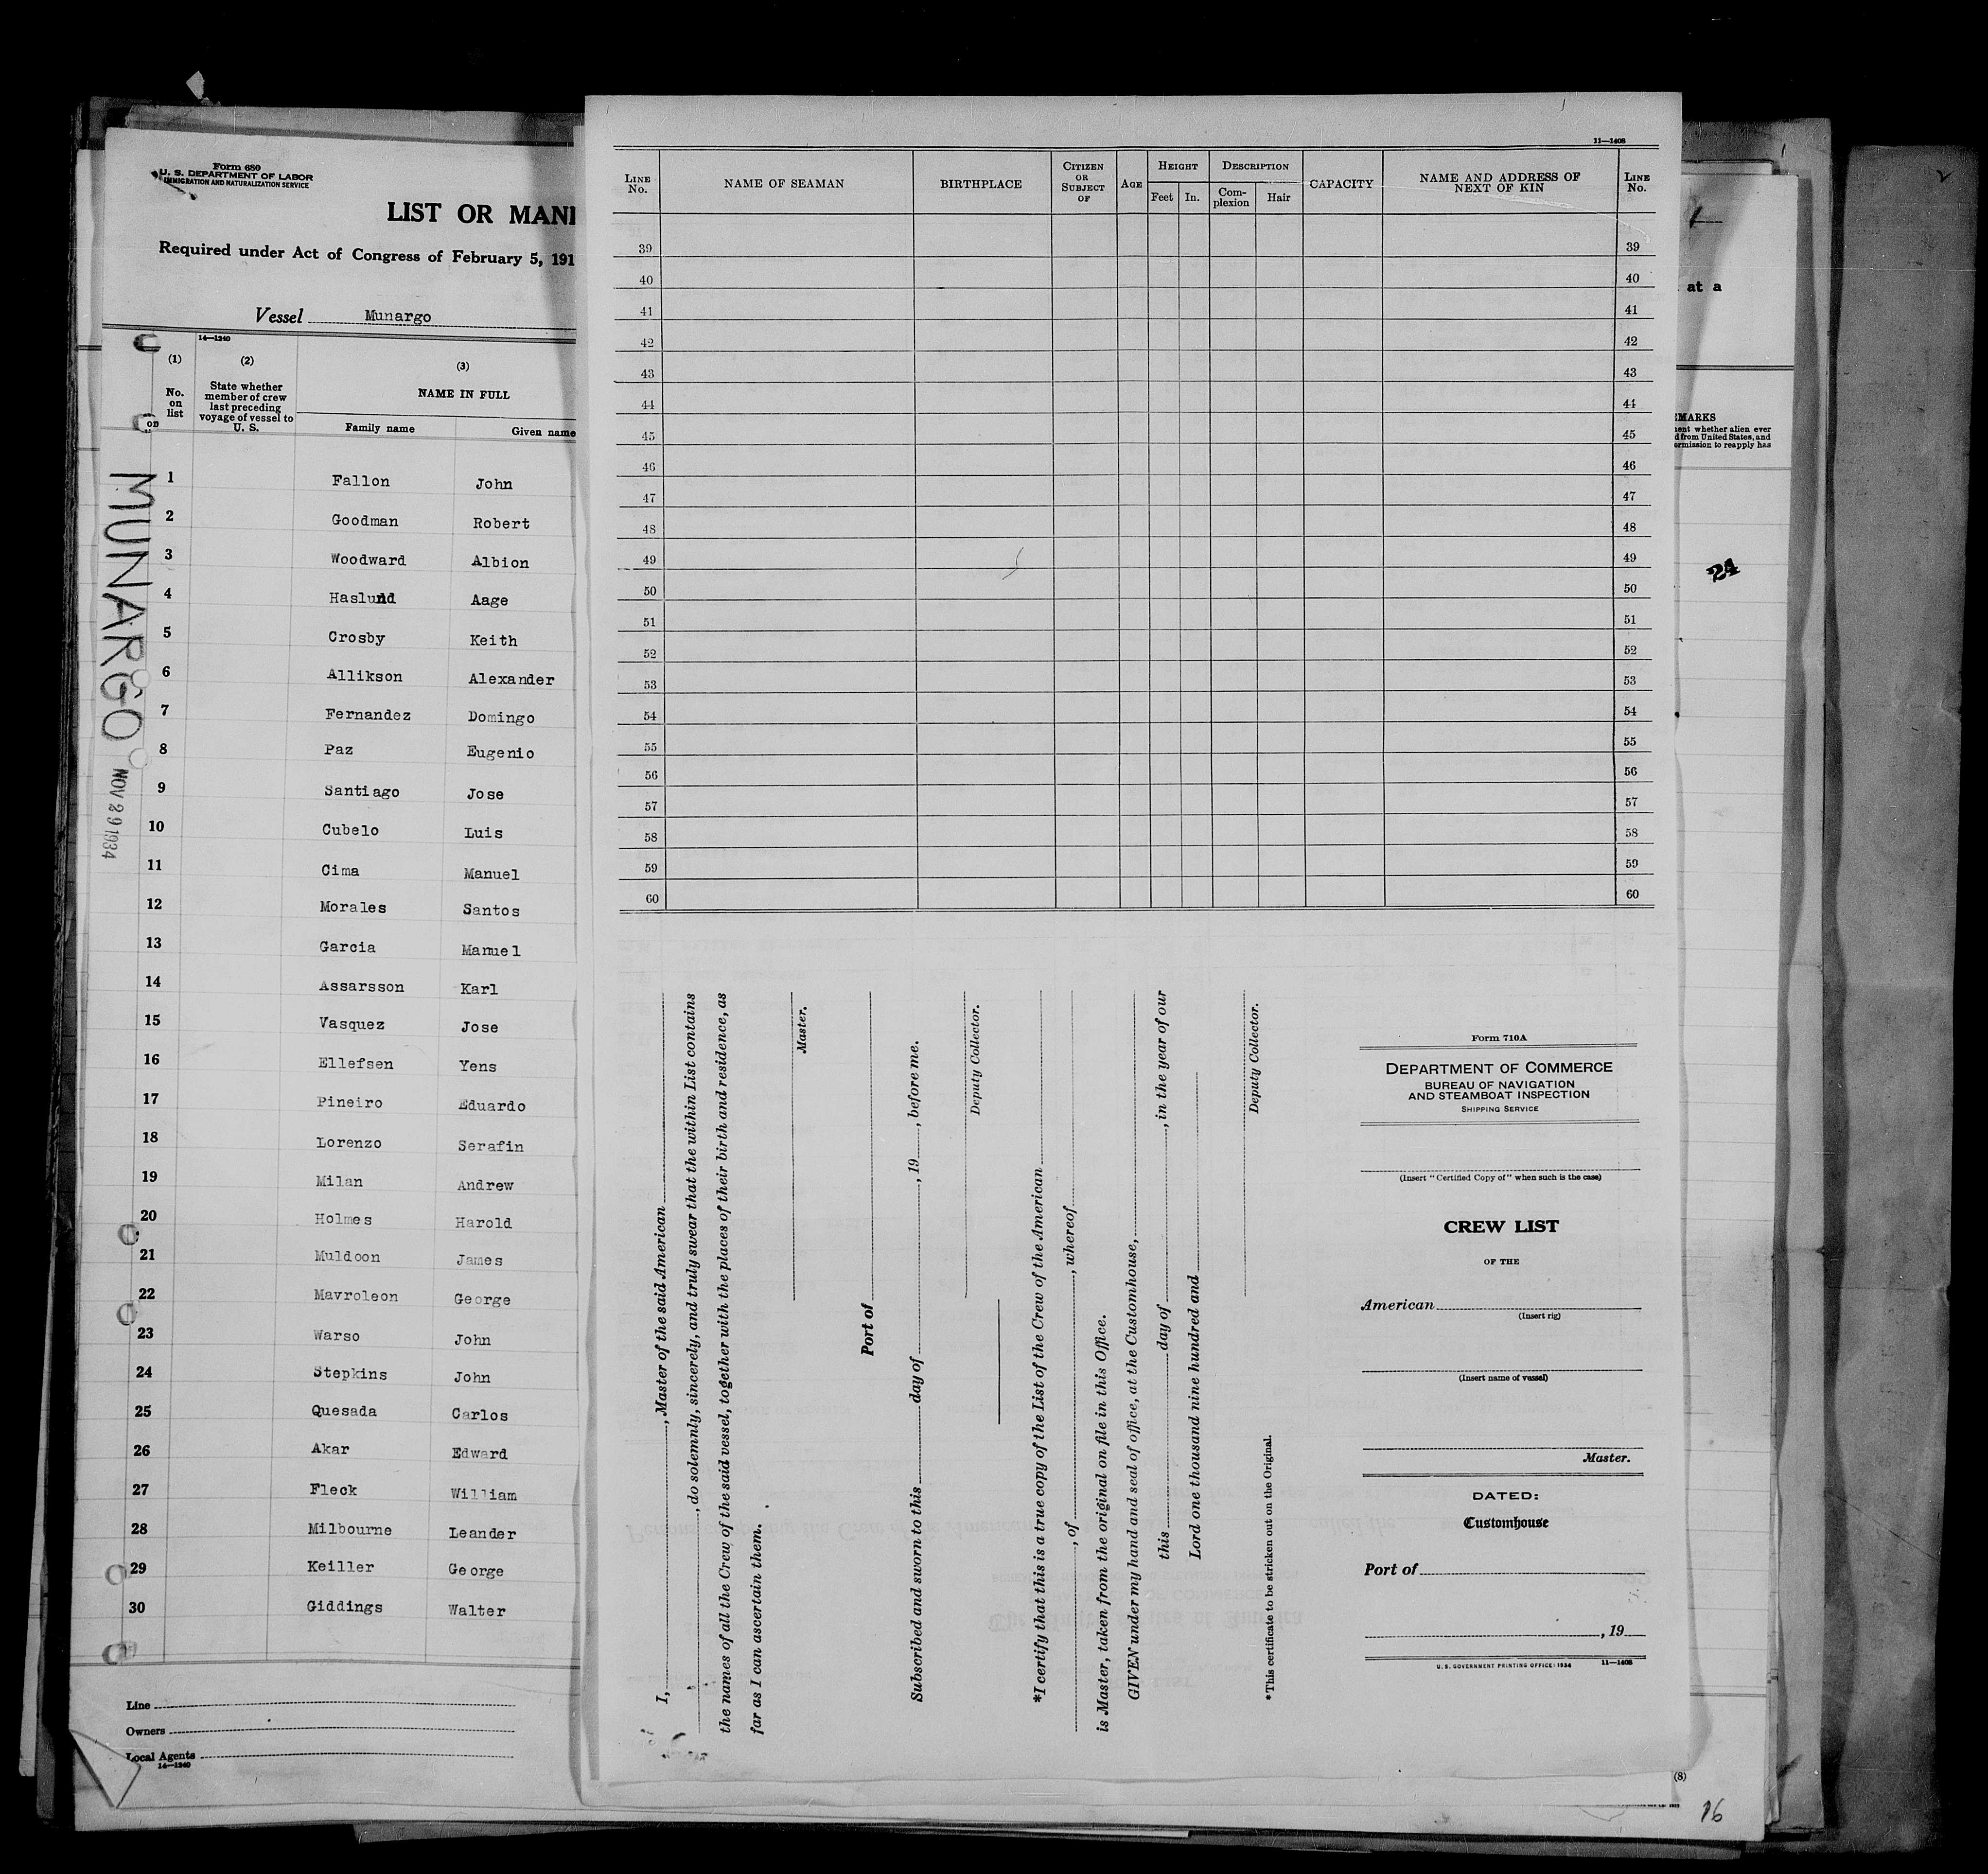 Form 680
U. S. DEPARTMENT OF LABOR
IMMIGRATION AND NATURALIZATION SERVICE
LIST OR MANI
Required under Act of Congress of February 5, 191
Vessel Munargo
14—1240
(1) (2) (3)
No. on list
State whether member of crew last preceding voyage of vessel to U. S.
NAME IN FULL
Family name Given name
on
MUNARGO
NOV 29 1934
1 Fallon John
2 Goodman Robert
3 Woodward Albion
4 Haslund Aage
5 Crosby Keith
6 Allikson Alexander
7 Fernandez Domingo
8 Paz Eugenio
9 Santiago Jose
10 Cubelo Luis
11 Cima Manuel
12 Morales Santos
13 Garcia Manuel
14 Assarsson Karl
15 Vasquez Jose
16 Ellefsen Yens
17 Pineiro Eduardo
18 Lorenzo Serafin
19 Milan Andrew
20 Holmes Harold
21 Muldoon James
22 Mavroleon George
23 Warso John
24 Stepkins John
25 Quesada Carlos
26 Akar Edward
27 Fleck William
28 Milbourne Leander
29 Keiller George
30 Giddings Walter
Line
Owners
Local Agents
14—1240
11—1408
LINE No.
NAME OF SEAMAN
BIRTHPLACE
CITIZEN OR SUBJECT OF
AGE
HEIGHT
Feet In.
DESCRIPTION
Com-plexion Hair
CAPACITY
NAME AND ADDRESS OF NEXT OF KIN
LINE No.
39 39
40 40
41 41
42 42
43 43
44 44
45 45
46 46
47 47
48 48
49 49
50 50
51 51
52 52
53 53
54 54
55 55
56 56
57 57
58 58
59 59
60 60
I, , Master of the said American
, do solemnly, sincerely, and truly swear that the within List contains
the names of all the Crew of the said vessel, together with the places of their birth and residence, as
far as I can ascertain them.
Master.
Port of
Subscribed and sworn to this day of , 19 , before me.
Deputy Collector.
*I certify that this is a true copy of the List of the Crew of the American
, of , whereof
is Master, taken from the original on file in this Office.
GIVEN under my hand and seal of office, at the Customhouse,
this day of , in the year of our
Lord one thousand nine hundred and
Deputy Collector.
*This certificate to be stricken out on the Original.
Form 710A
DEPARTMENT OF COMMERCE
BUREAU OF NAVIGATION
AND STEAMBOAT INSPECTION
SHIPPING SERVICE
(Insert "Certified Copy of" when such is the case)
CREW LIST
OF THE
American
(Insert rig)
(Insert name of vessel)
Master.
DATED:
Customhouse
Port of
, 19
U. S. GOVERNMENT PRINTING OFFICE: 1934 11—1408
at a
EMARKS
ent whether alien ever
d from United States, and
ermission to reapply has
24
(8)
16